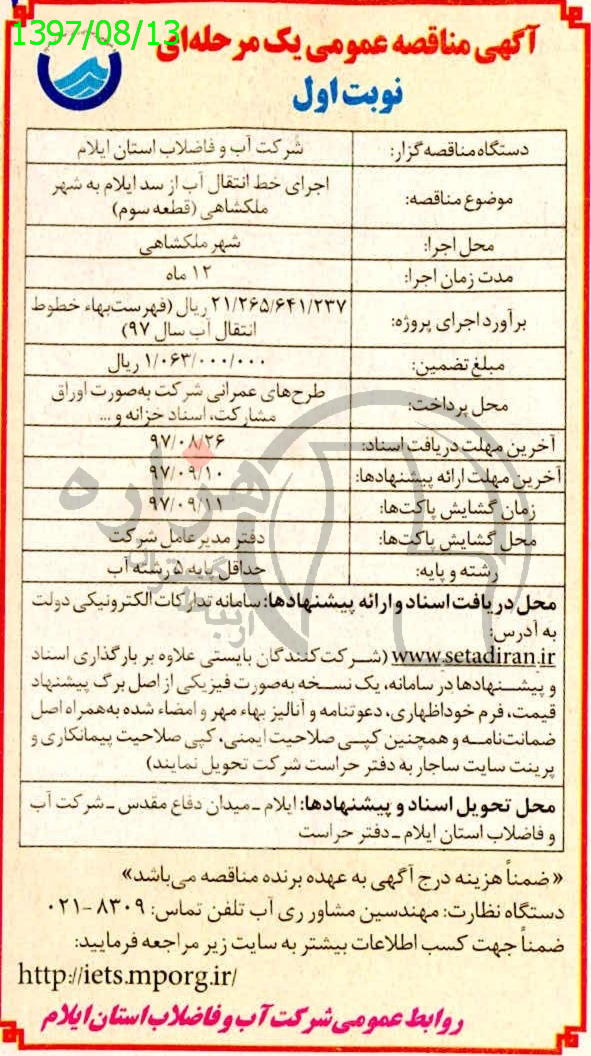 1397/08/13
آگهی مناقصه عمومی یک مرحله‌ای
نوبت اول
دستگاه مناقصه گزار: شرکت آب و فاضلاب استان ایلام
موضوع مناقصه: اجرای خط انتقال آب از سد ایلام به شهر
ملکشاهی (قطعه سوم)
محل اجرا: شهر ملکشاهی
مدت زمان اجرا: ۱۲ ماه
برآورد اجرای پروژه: ۲۱/۲۶۵/۶۴۱/۲۳۷ ریال (فهرست‌بهاء خطوط
انتقال آب سال ۹۷)
مبلغ تضمین: ۱/۰۶۳/۰۰۰/۰۰۰ ریال
محل پرداخت: طرح‌های عمرانی شرکت به‌صورت اوراق
مشارکت، اسناد خزانه و ...
آخرین مهلت دریافت اسناد: ۹۷/۰۸/۲۶
آخرین مهلت ارائه پیشنهادها: ۹۷/۰۹/۱۰
زمان گشایش پاکت‌ها: ۹۷/۰۹/۱۱
محل گشایش پاکت‌ها: دفتر مدیرعامل شرکت
رشته و پایه: حداقل پایه ۵ رشته آب
محل دریافت اسناد و ارائه پیشنهادها: سامانه تدارکات الکترونیکی دولت
به آدرس:
www.setadiran.ir (شرکت‌کنندگان بایستی علاوه بر بارگذاری اسناد
و پیشنهادها در سامانه، یک نسخه به‌صورت فیزیکی از اصل برگ پیشنهاد
قیمت، فرم خوداظهاری، دعوتنامه و آنالیز بهاء مهر و امضاء شده به‌همراه اصل
ضمانت‌نامه و همچنین کپی صلاحیت ایمنی، کپی صلاحیت پیمانکاری و
پرینت سایت ساجار به دفتر حراست شرکت تحویل نمایند)
محل تحویل اسناد و پیشنهادها: ایلام ـ میدان دفاع مقدس ـ شرکت آب
و فاضلاب استان ایلام ـ دفتر حراست
«ضمناً هزینه درج آگهی به عهده برنده مناقصه می‌باشد»
دستگاه نظارت: مهندسین مشاور ری آب تلفن تماس: ۸۳۰۹-۰۲۱
ضمناً جهت کسب اطلاعات بیشتر به سایت زیر مراجعه فرمایید:
http://iets.mporg.ir/
روابط عمومی شرکت آب و فاضلاب استان ایلام
هزاره